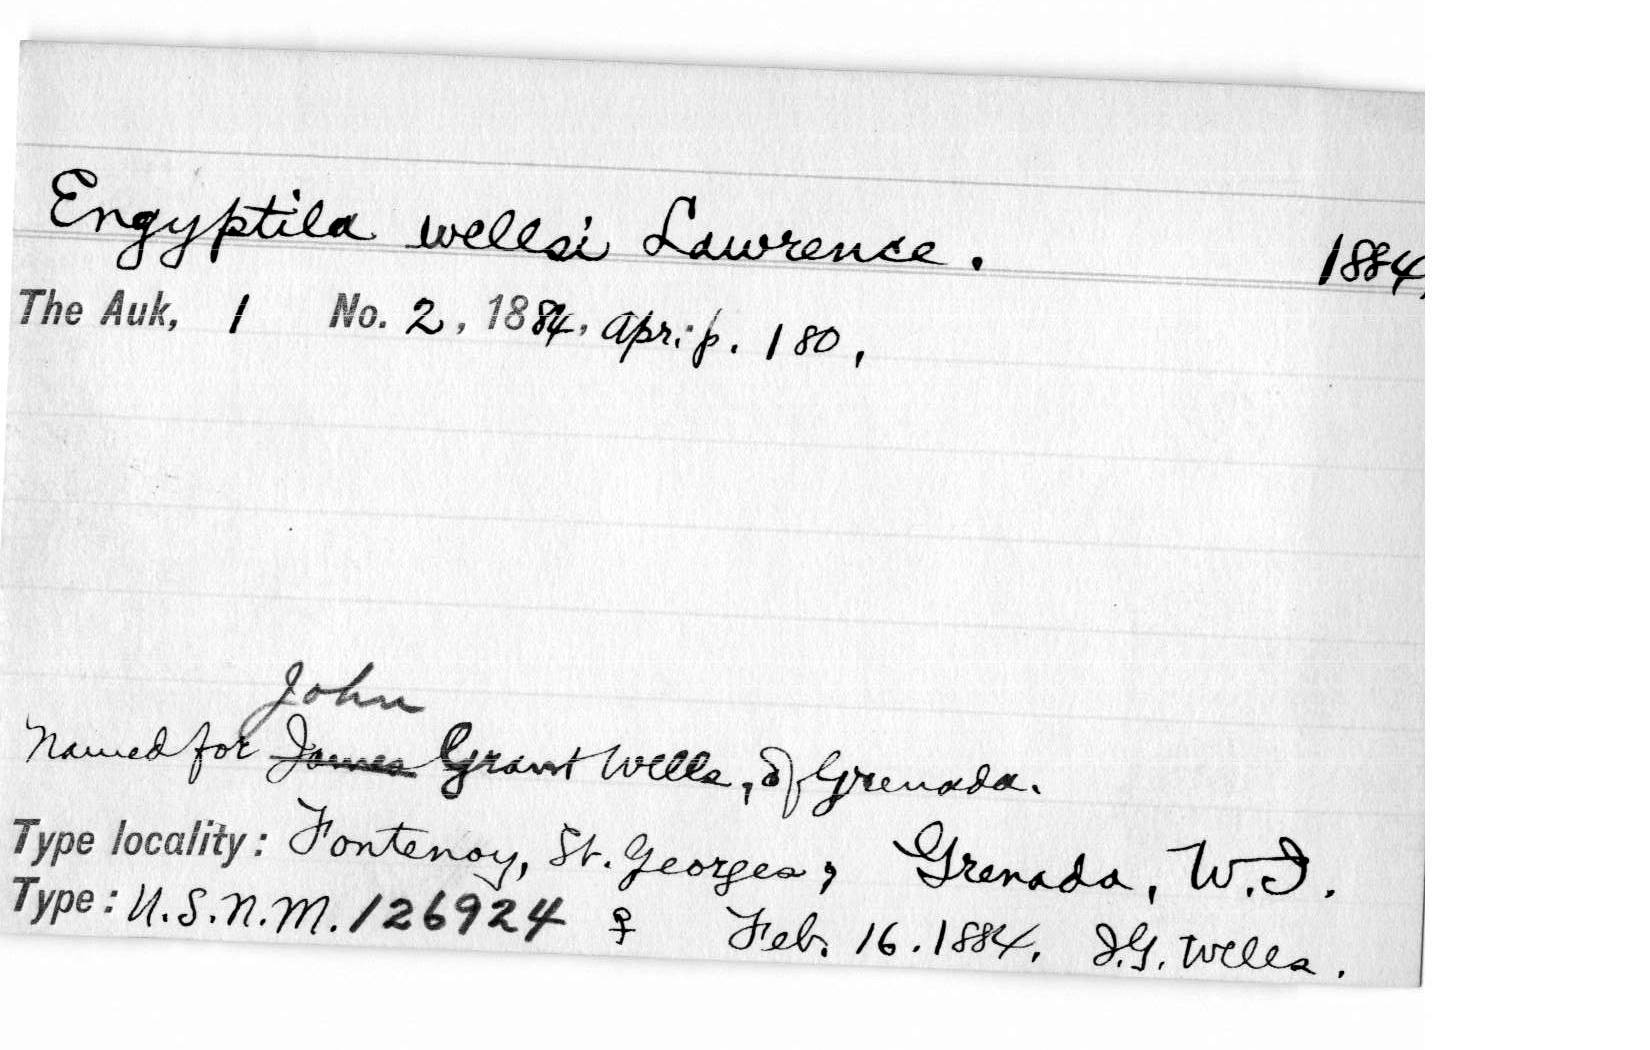 Engyptila wellsi Lawrence. 1884.
The Auk, 1 No. 2, 1884, Apr. p. 180,
John
Named for James Grant Wells, of Grenada.
Type locality: Fontenoy, St. Georges, Grenada, W.I.
Type: U.S.N.M. 126924 ♀ Feb. 16. 1884. J.G. Wells.